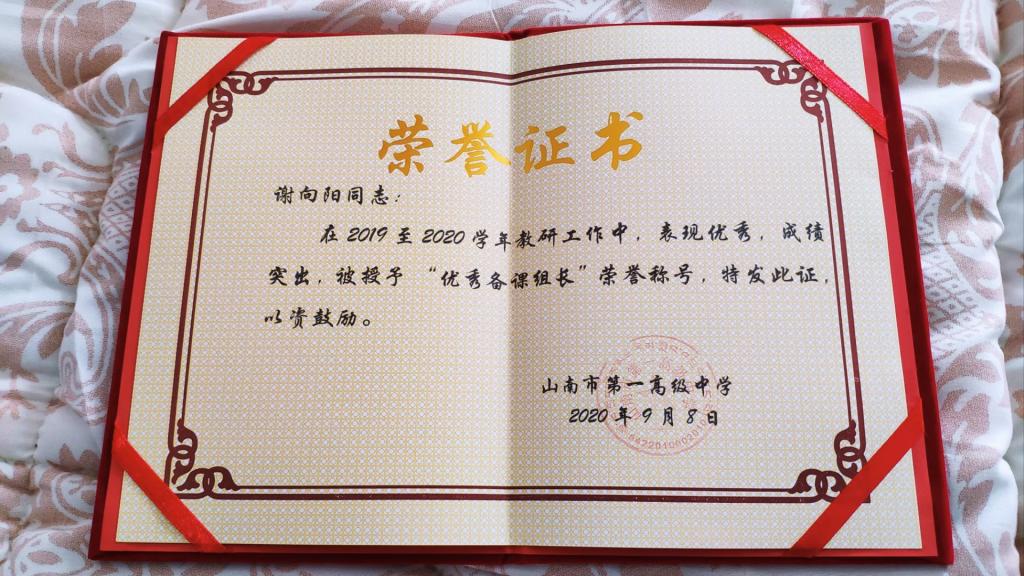 荣誉证书
谢向阳同志：
在2019至2020学年教研工作中，表现优秀，成绩
突出，被授予“优秀备课组长”荣誉称号，特发此证，
以资鼓励。
山南市第一高级中学
2020年9月8日